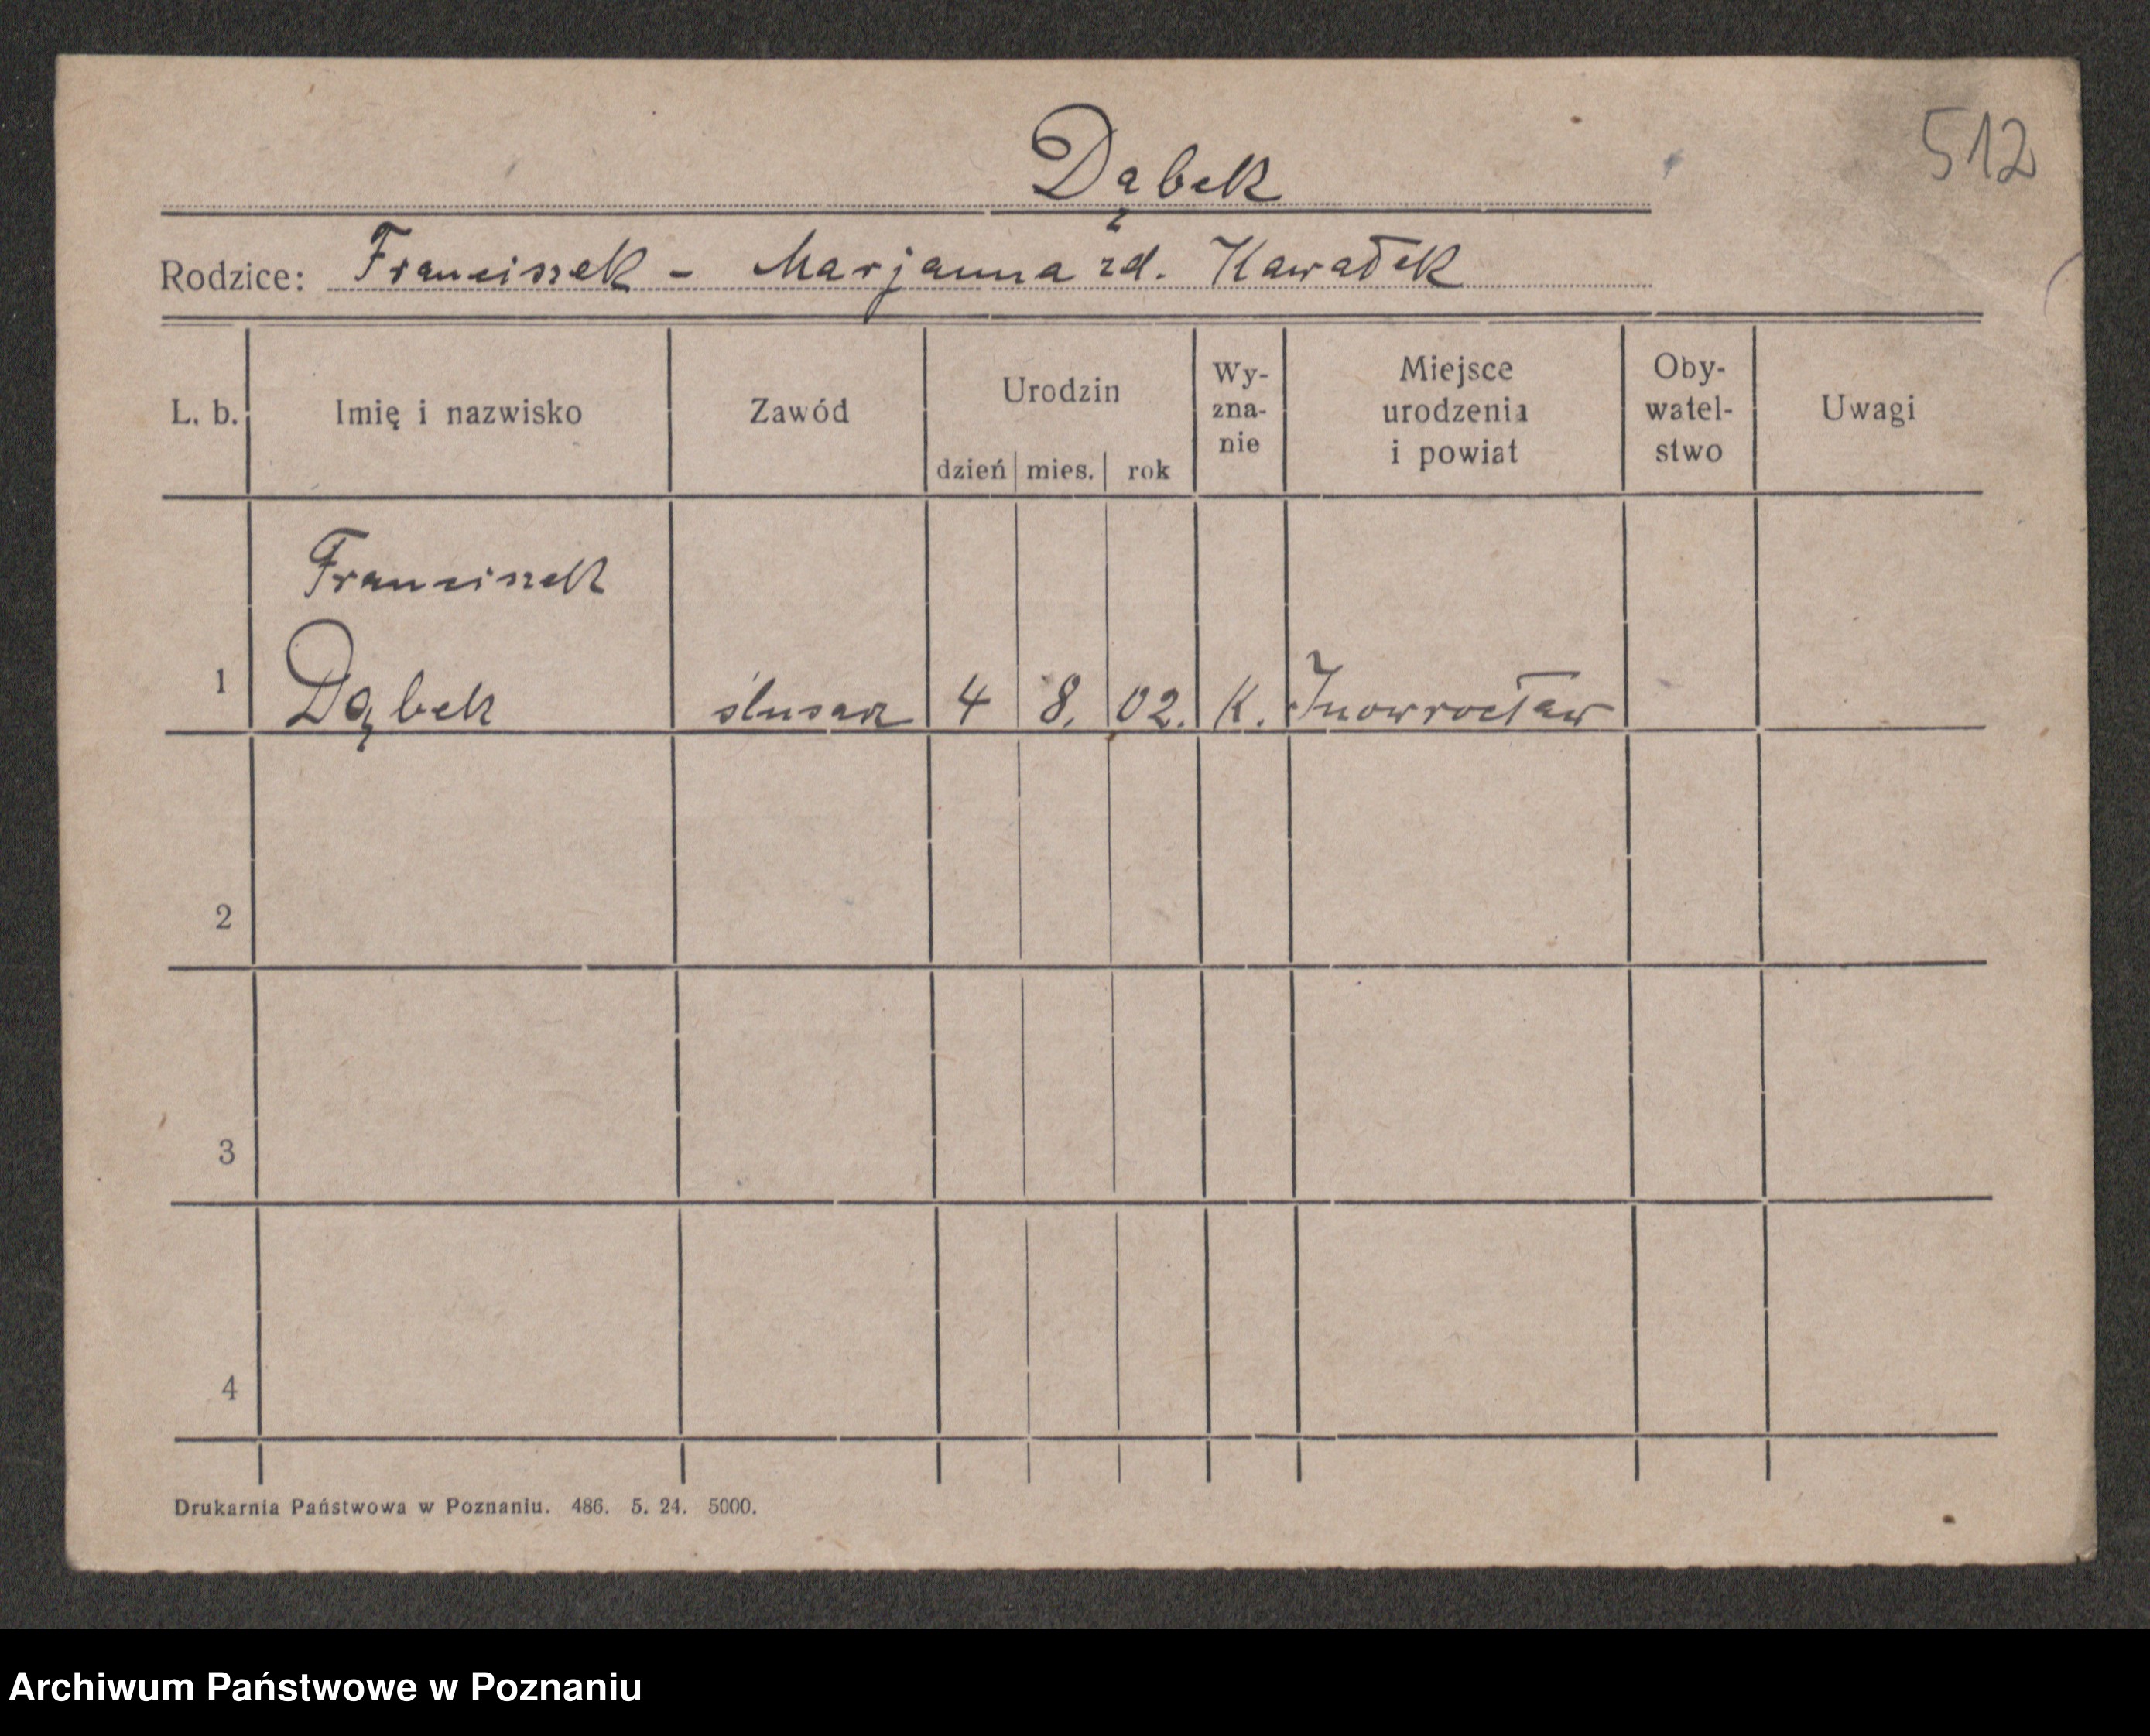 512
Dąbek
Rodzice: Franciszek - Marjanna zd. Kawałek
L. b. Imię i nazwisko Zawód Urodzin dzień mies. rok Wy-zna-nie Miejsce urodzenia i powiat Oby-watel-stwo Uwagi
Franciszek
1 Dąbek ślusarz 4 8. 02. K. Inowrocław
2
3
4
Drukarnia Państwowa w Poznaniu. 486. 5. 24. 5000.
Archiwum Państwowe w Poznaniu